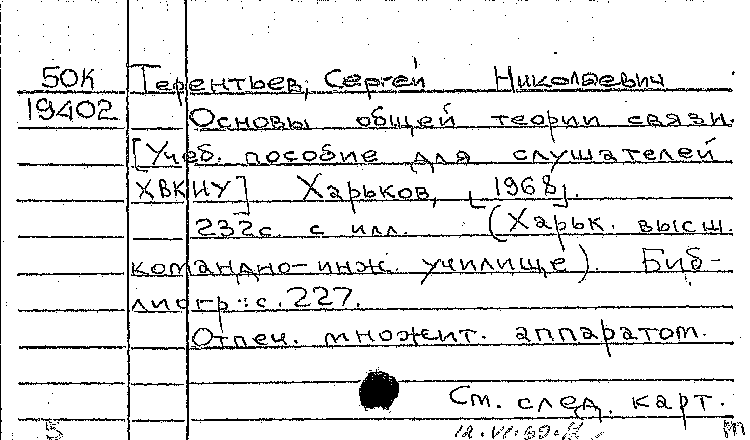 50К Терентьев, Сергей Николаевич
19402 Основы общей теории связи.
[Учеб. пособие для слушателей
ХВКИУ] Харьков, [1968].
232с. с илл. (Харьк. высш.
командно-инж. училище). Биб-
лиогр.: с. 227.
Отпеч. множит. аппаратом.
См. след. карт.
5 m